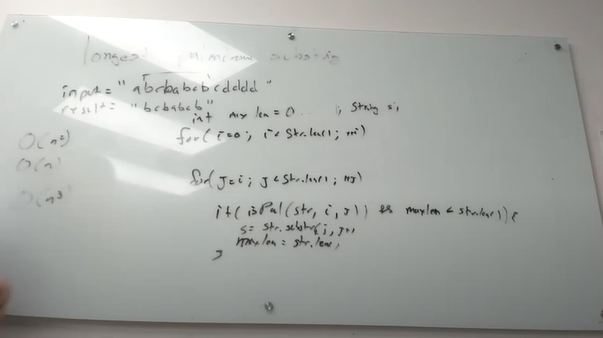 longest palindrome substring
input = "abcbabcbcdddd"
result = "bcbabcb"
int maxlen = 0 ... ; String s;
O(n²)
for( i=0; i<str.len(); ++i)
O(n)
for( j=i; j<str.len(); ++j)
O(n³)
if( isPal(str, i, j)) && maxlen < str.len()) {
s = str.substr(i, j+1
maxlen = str.len,
}